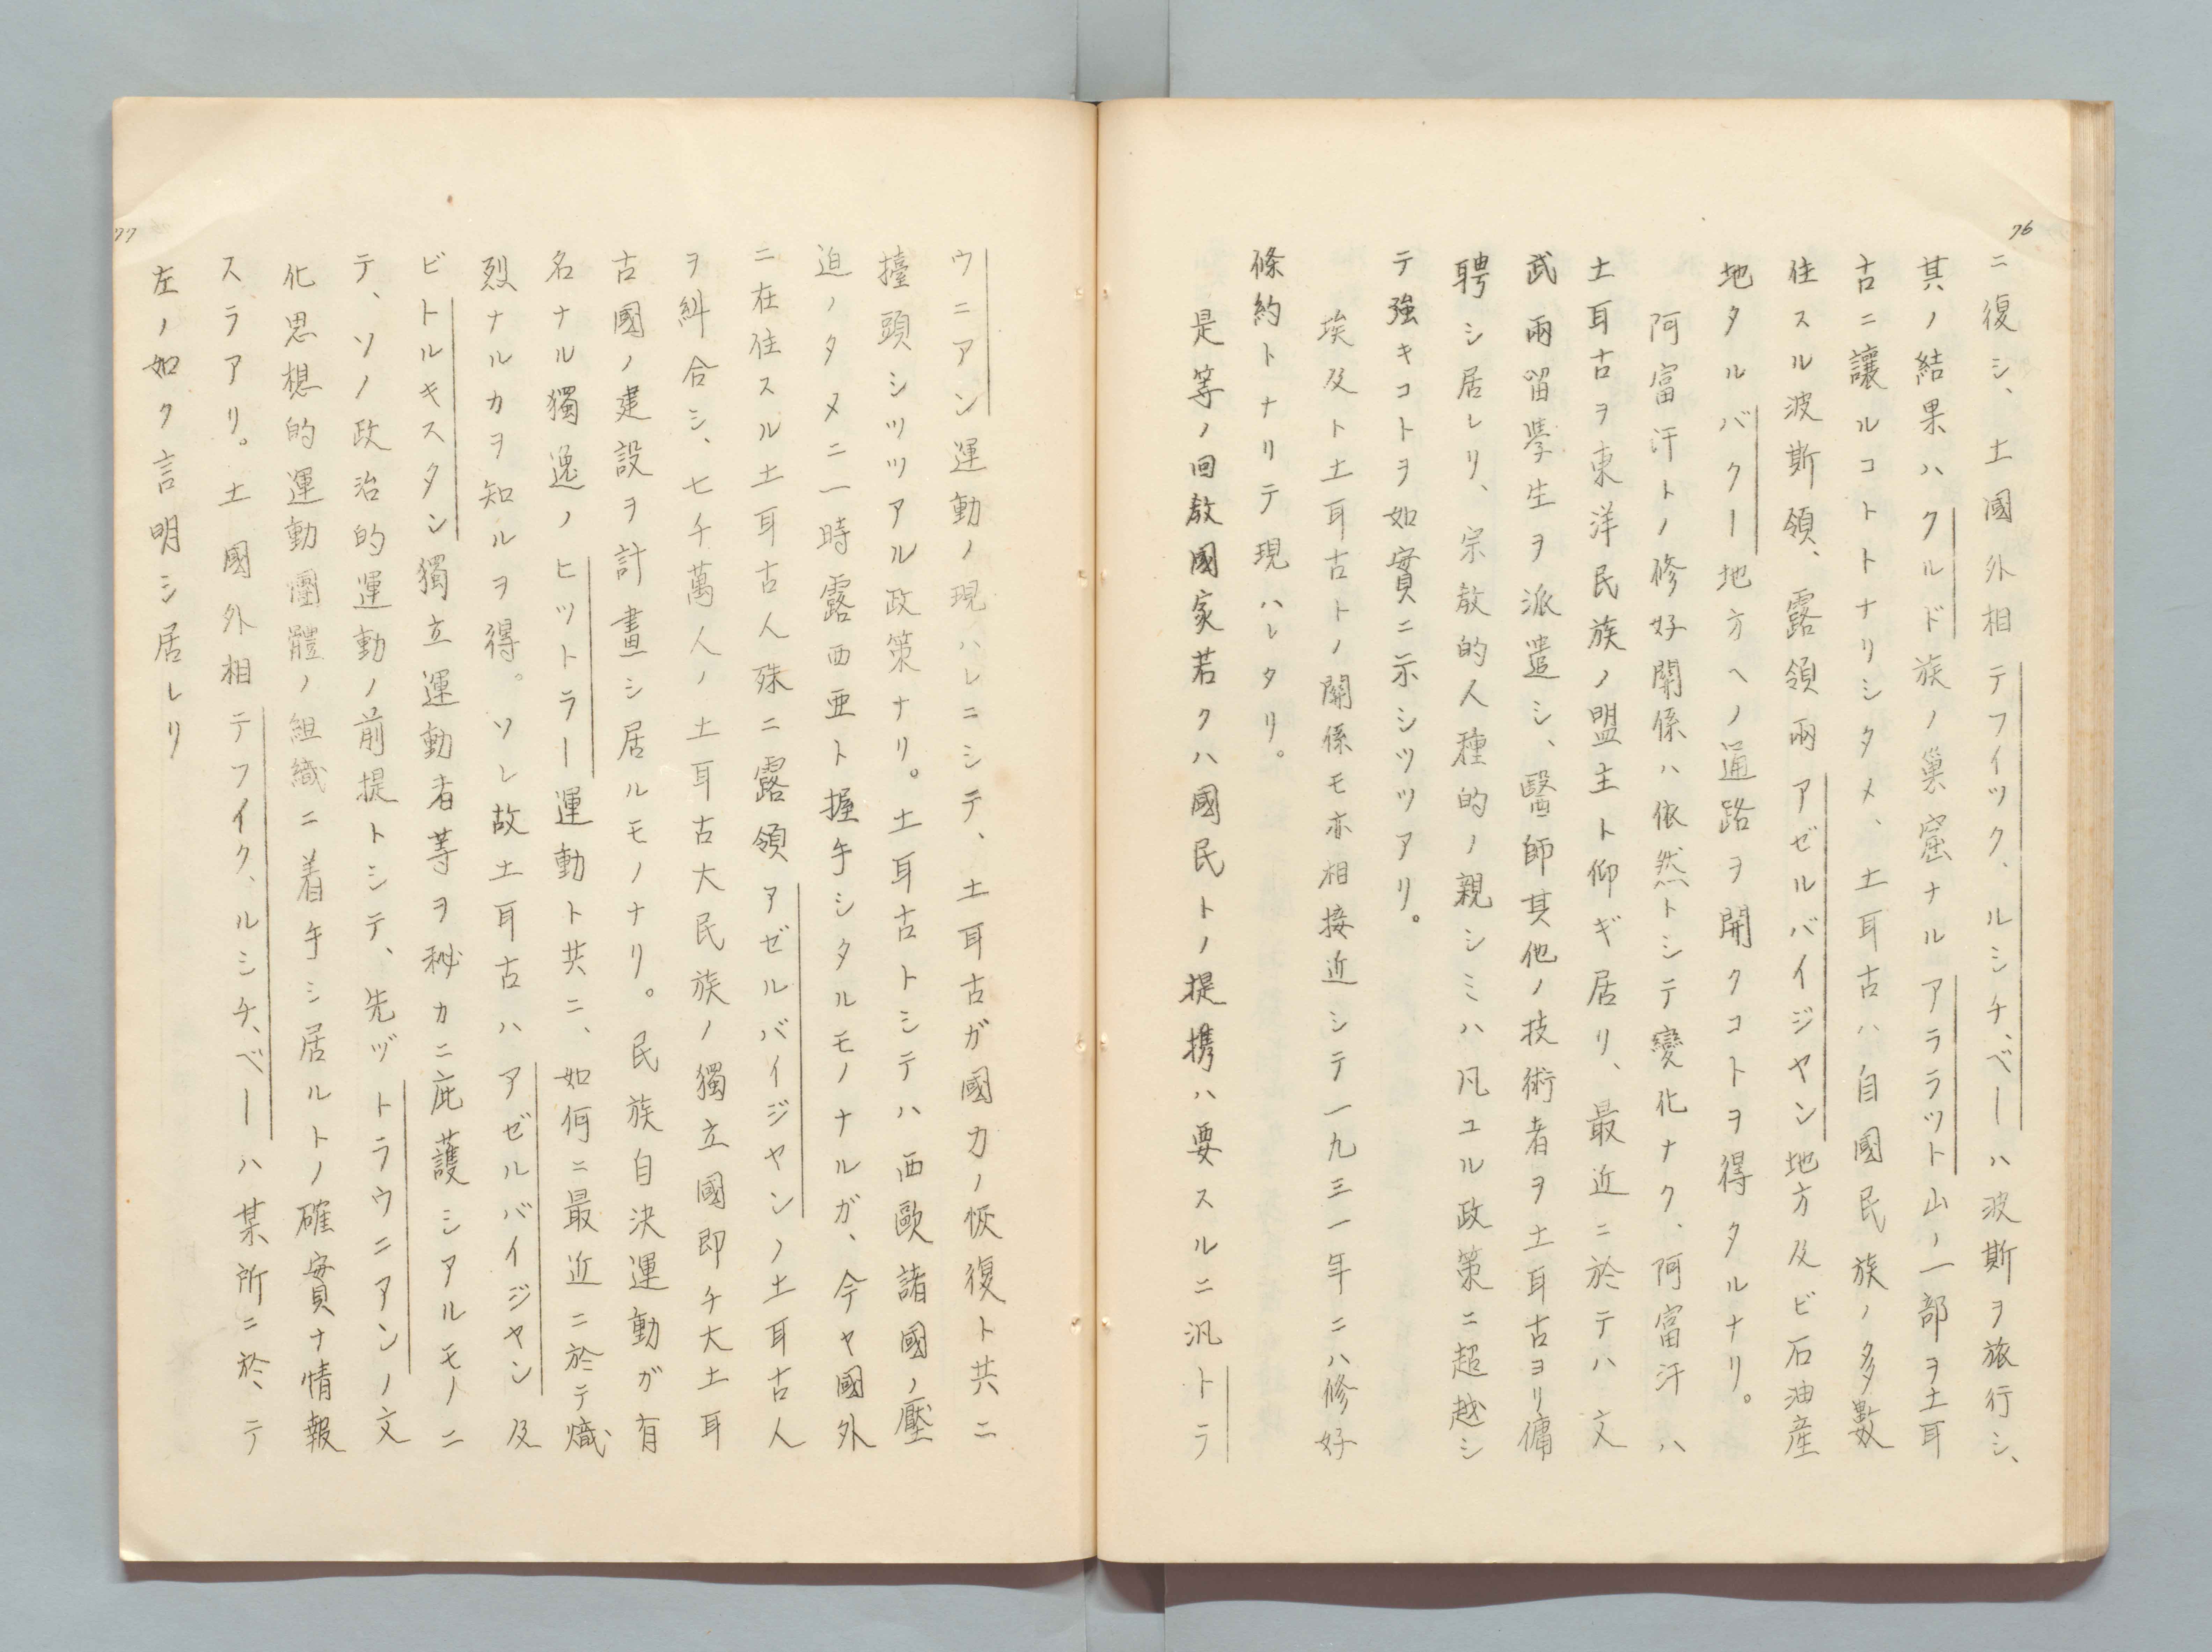 76
ニ復シ、土國外相テフイツク、ルシチ、ベーハ波斯ヲ旅行シ、
其ノ結果ハクルド族ノ巣窟ナルアララツト山ノ一部ヲ土耳
古ニ讓ルコトトナリシタメ、土耳古ハ自國民族ノ多數
住スル波斯領、露領兩アゼルバイジヤン地方及ビ石油産
地タルバクー地方ヘノ通路ヲ開クコトヲ得タルナリ。
阿富汗トノ修好關係ハ依然トシテ變化ナク、阿富汗ハ
土耳古ヲ東洋民族ノ盟主ト仰ギ居リ、最近ニ於テハ文
武兩留學生ヲ派遣シ、醫師其他ノ技術者ヲ土耳古ヨリ傭
聘シ居レリ、宗教的人種的ノ親シミハ凡ユル政策ニ超越シ
テ強キコトヲ如實ニ示シツツアリ。
埃及ト土耳古トノ關係モ亦相接近シテ一九三一年ニハ修好
條約トナリテ現ハレタリ。
是等ノ回教國家若クハ國民トノ提携ハ要スルニ汎トラ
ウニアン運動ノ現ハレニシテ、土耳古ガ國力ノ恢復ト共ニ
擡頭シツツアル政策ナリ。土耳古トシテハ西歐諸國ノ壓
迫ノタメニ一時露西亜ト握手シタルモノナルガ、今ヤ國外
ニ在住スル土耳古人殊ニ露領アゼルバイジヤンノ土耳古人
ヲ糾合シ、七千萬人ノ土耳古大民族ノ獨立國即チ大土耳
古國ノ建設ヲ計畫シ居ルモノナリ。民族自決運動ガ有
名ナル獨逸ノヒツトラー運動ト共ニ、如何ニ最近ニ於テ熾
烈ナルカヲ知ルヲ得。ソレ故土耳古ハアゼルバイジヤン及
ビトルキスタン獨立運動者等ヲ秘カニ庇護シアルモノニ
テ、ソノ政治的運動ノ前提トシテ、先ヅトラウニアンノ文
化思想的運動團體ノ組織ニ着手シ居ルトノ確實ナ情報
スラアリ。土國外相テフイク、ルシチ、ベーハ某所ニ於テ
左ノ如ク言明シ居レリ
77